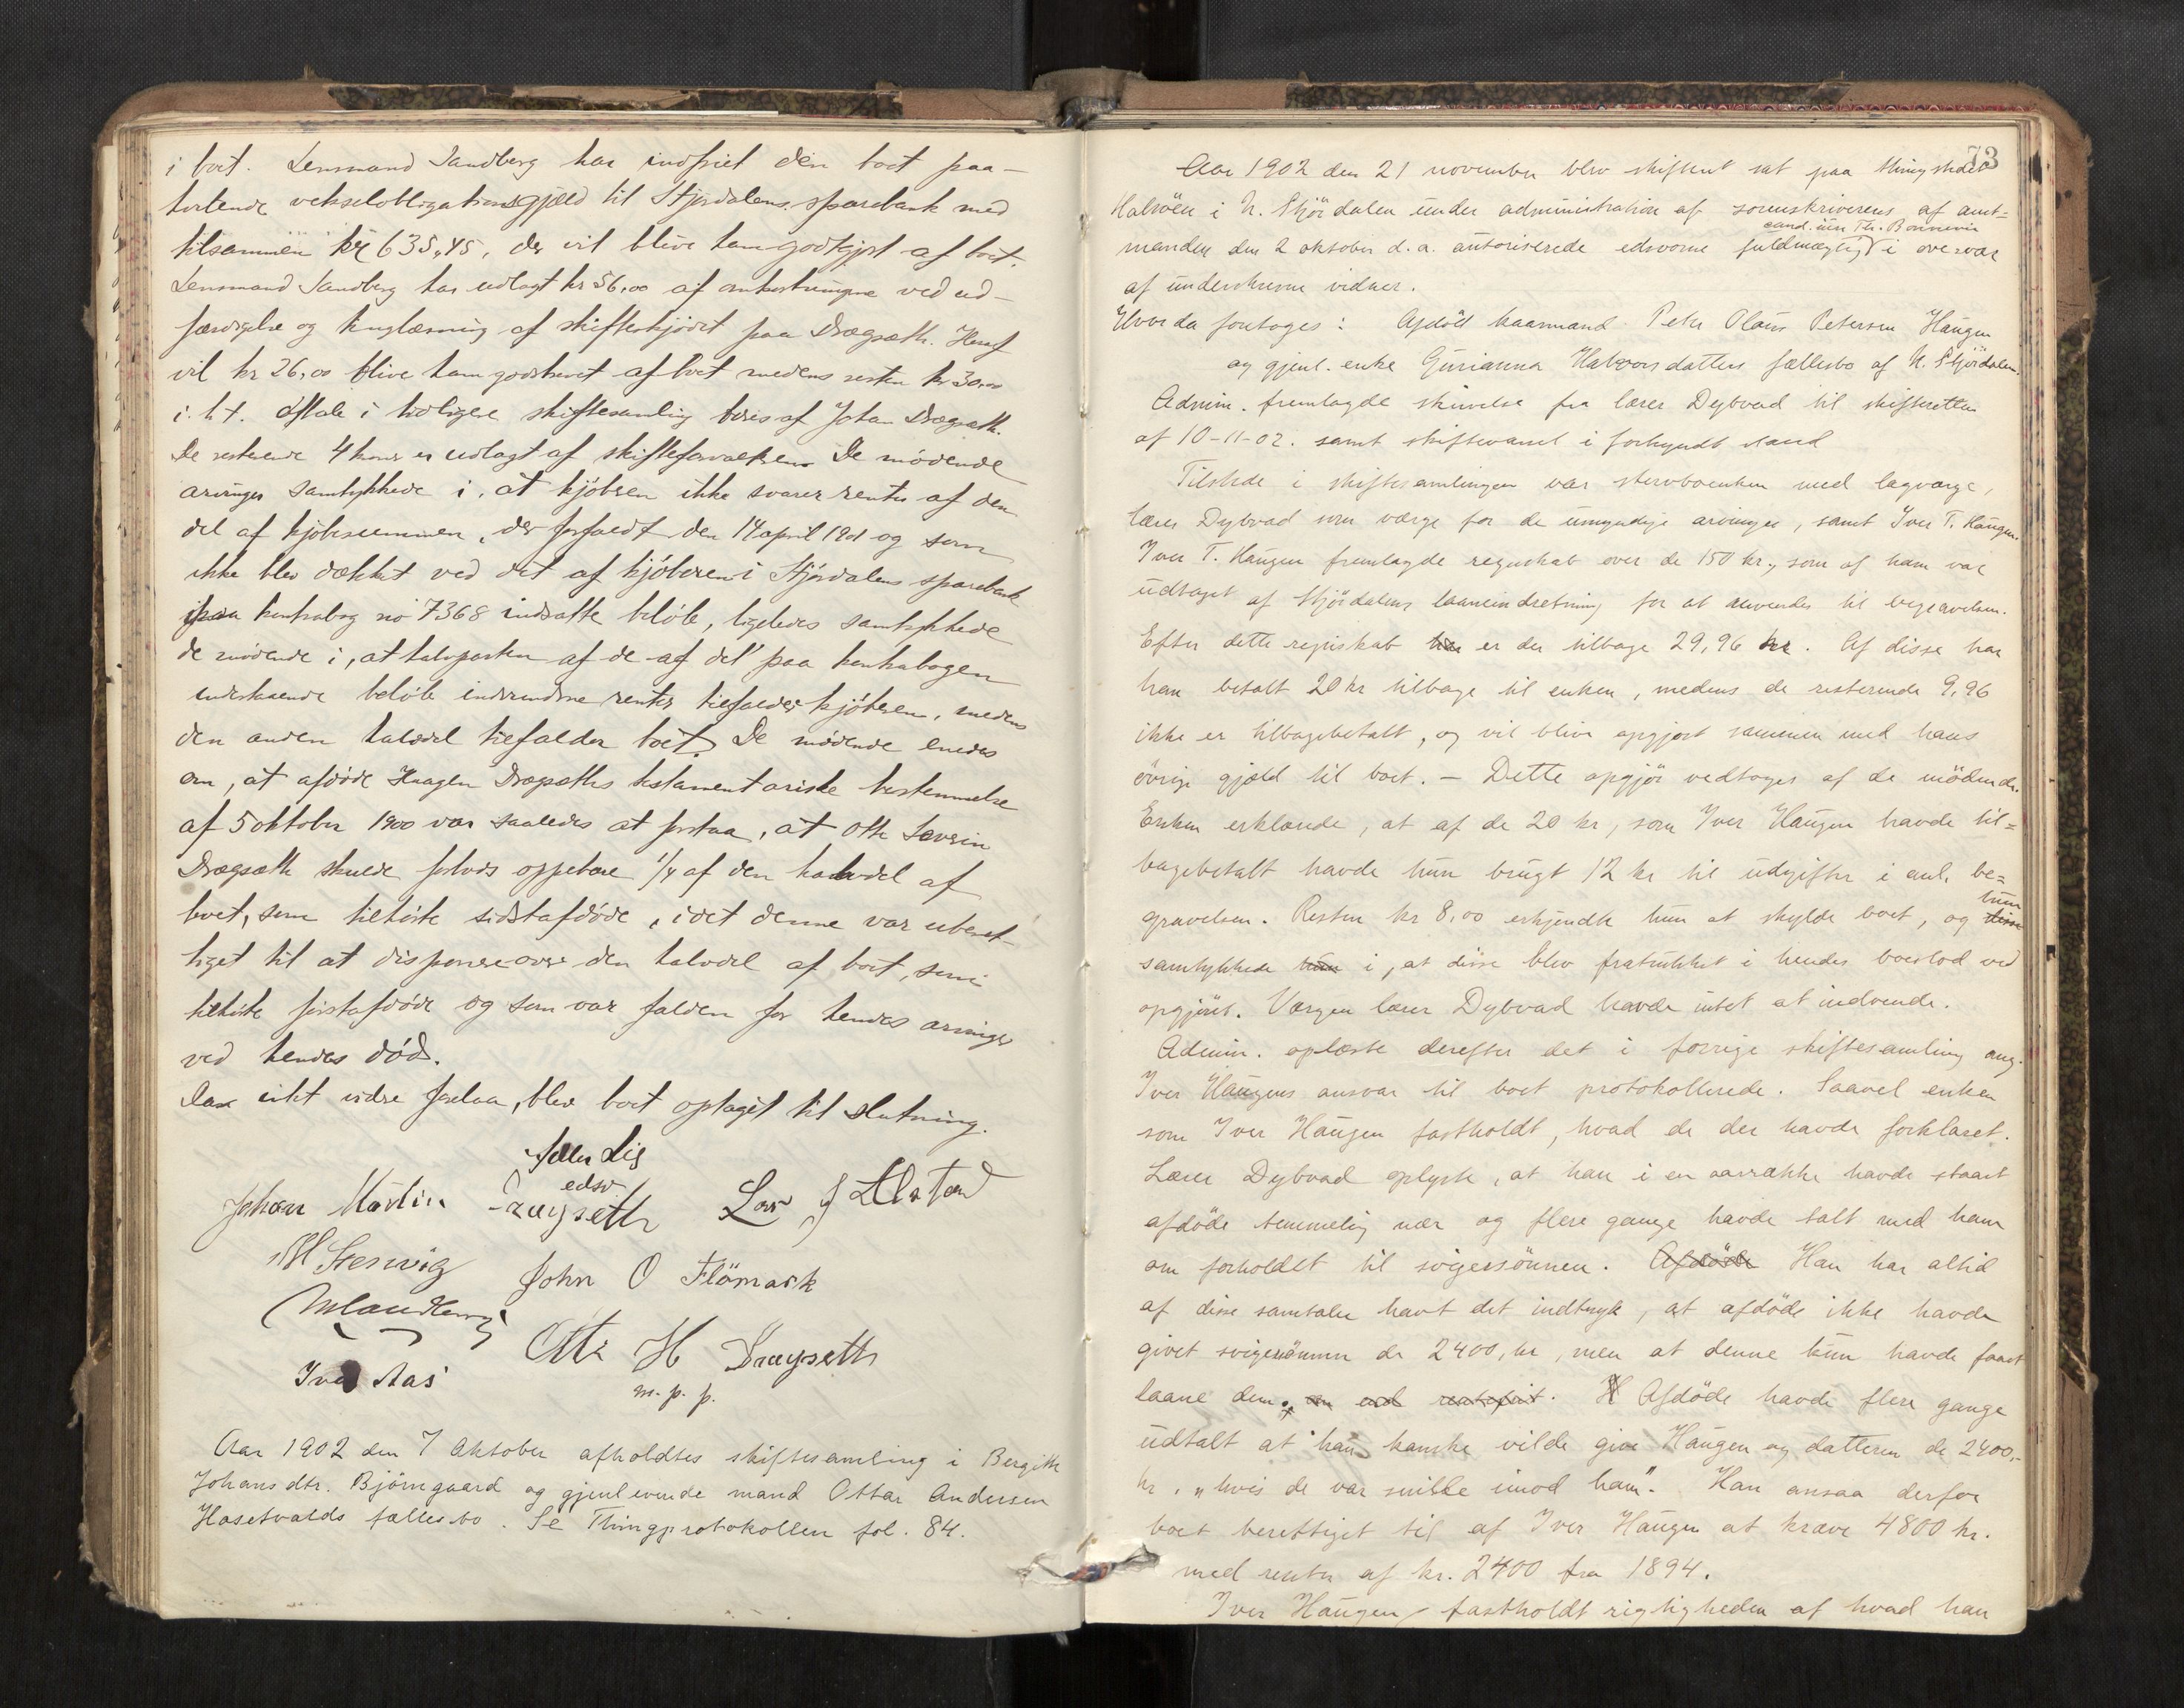 i boet. Lensmand Sandberg har indfriet den boet paa-
hvilende vekselobligationsgjæld til Stjørdalens sparebank med
tilsammen kr 635,45, der vil blive ham godtgjort af boet.
Lensmand Sandberg har udlagt kr 56,00 af omkostningerne ved ud-
færdigelse og tinglæsning af skifteskjødet paa Dragsæth. Heraf
vil kr 26,00 blive ham godskrevet af boet medens resten kr 30,00
i. h. t. aftale i tidligere skiftesamling bæres af Johan Dragsæth.
De resterende 4 kroner er udlagt af skifteforvalteren. De mødende
arvinger samtykkede i, at kjøberen ikke svarer renter af den
del af kjøbesummen, der forfaldt den 14 april 1901 og som
ikke blev dækket ved det af kjøberen i Stjørdalens sparebank
paa kontrabog no 7368 indsatte beløb, ligeledes samtykkede
de mødende i, at halvparten af de af det paa kontrabogen
indestaaende beløb indvundne renter tilfalder kjøberen, medens
den anden halvdel tilfalder boet. De mødende enedes
om, at afdøde Haagen Dragsæths testamentariske bestemmelse
af 5 oktober 1900 var saaledes at forstaa, at Otte Severin
Dragsæth skulde forlods oppebære 1/4 af den halvdel af
boet, som tilhørte sidstafdøde, idet denne var uberet-
tiget til at disponere over den halvdel af boet, som
tilhørte førstafdøde og som var falden for hendes arvinger
ved hendes død.
Da intet videre forelaa, blev boet optaget til slutning.
edsv
Johan Martin Dragseth Lars J Elstad
John O Flömark
Otte H Dragseth
Iver Aas
m. p. p.
Aar 1902 den 7 Oktober afholdtes skiftesamling i Bergitte
Johansdtr. Bjørngaard og gjenlevende mand Ottar Andersen
Hosetvalds fællesbo. Se Thingprotokollen fol. 84.
73
Aar 1902 den 21 november blev skifteret sat paa thingstedet
Halsöen i N. Stjördalen under administration af sorenskriverens af amt=
cand. jur. Th. Bonnevie
manden den 2 oktober d. a. autoriserede edsvorne fuldmægtig i overvær
af underskrevne vidner.
Hvorda foretoges: Afdöd kaarmand Peter Olaus Petersen Haugen
og gjenl. enke Gurianna Halvorsdatters fællesbo af N. Stjördalen.
Admin. fremlagde skrivelse fra lærer Dybvad til skifteretten
af 10-11-02. samt skiftevarsel i forkyndt stand
Tilstede i skiftesamlingen var stervboenken med lagværge,
lærer Dybvad som værge for de umyndige arvinger, samt Iver T. Haugen.
Iver T. Haugen fremlagde regnskab over de 150 kr., som af ham var
udtaget af Stjördalens laaneindretning for at anvendes til begravelsen.
Efter dette regnskab har er der tilbage 29,96 kr. Af disse har
han betalt 20 kr tilbage til enken, medens de resterende 9,96
ikke er tilbagebetalt, og vil blive opgjort sammen med hans
övrige gjæld til boet. – Dette opgjör vedtoges af de mödende.
Enken erklærede, at af de 20 kr, som Iver Haugen havde til=
bagebetalt havde hun brugt 12 kr til udgifter i anl. be=
hun
gravelsen. Resten kr 8,00 erkjendte hun at skylde boet, og disse
samtykkede hun i, at disse blev fratrukket i hendes boeslod ved
opgjöret. Værgen lærer Dybvad havde intet at indvende.
Admin. oplæste derefter det i forrige skiftesamling ang.
Iver Haugens ansvar til boet protokollerede. Saavel enken
som Iver Haugen fastholdt, hvad de der havde forklaret.
Lærer Dybvad oplyste, at han i en aarrække havde staaet
afdöde temmelig nær og flere gange havde talt med ham
om forholdet til svigersönnen. Afdöde Han har altid
af disse samtaler havt det indtryk, at afdöde ikke havde
givet svigersönnen de 2400,- kr, men at denne kun havde faaet
laane dem, om end rentefrit. H Afdöde havde flere gange
udtalt at han kanske vilde give Haugen og datteren de 2400,-
kr, „hvis de var snilde imod ham". Han ansaa derfor
boet berettiget til af Iver Haugen at kræve 4800 kr.
med renter af kr. 2400 fra 1894.
Iver Haugen fastholdt rigtigheden af hvad han